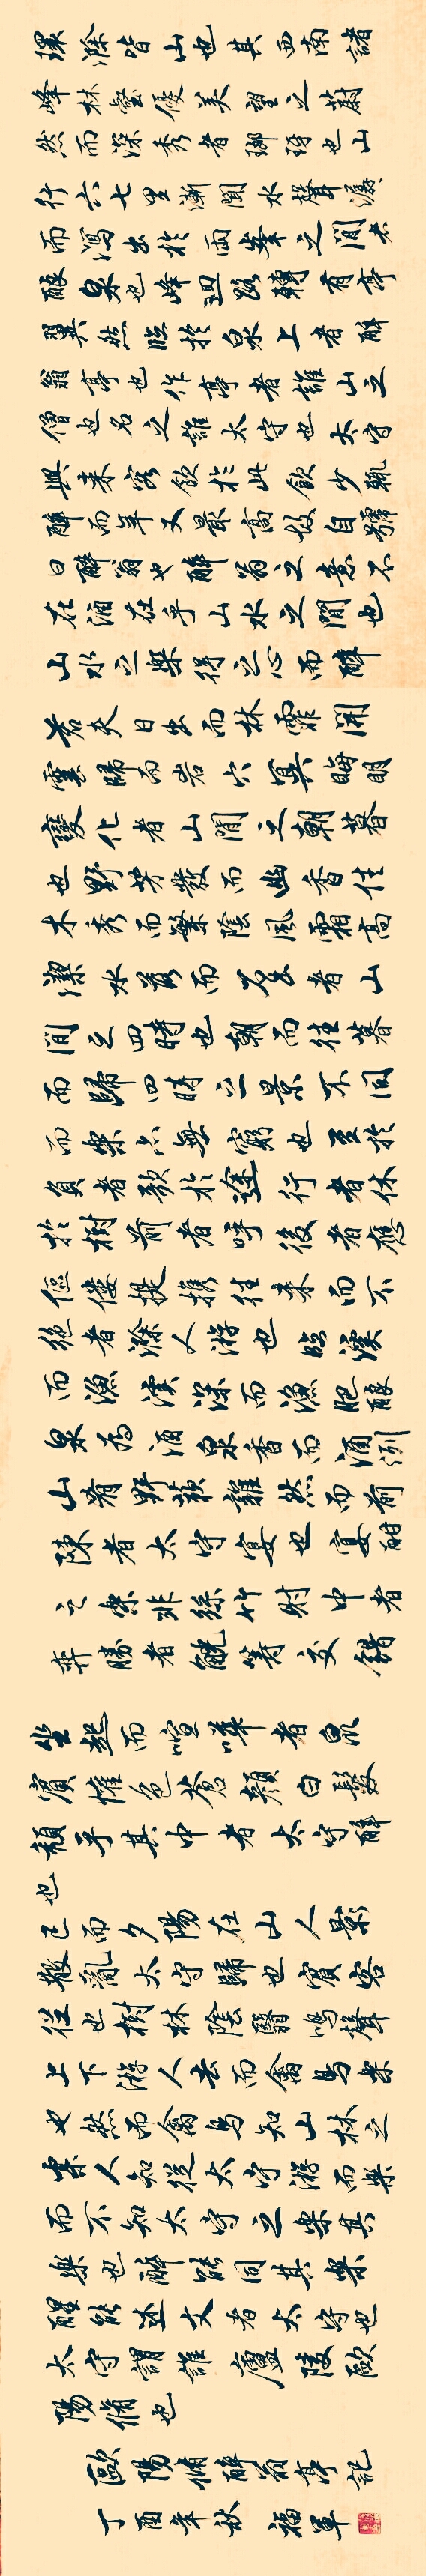 環滁皆山也其西南諸
峰林壑優美望之蔚
然而深秀者瑯琊也山
行六七里漸聞水聲潺
而瀉出於兩峰之間者
釀泉也峰迴路轉有亭
翼然臨於泉上者醉
翁亭也作亭者誰山之
僧也名之誰太守也太守
與來客飲於此飲少輒
醉而年又最高故自號
曰醉翁也醉翁之意不
在酒在乎山水之間也
山水之樂得之心而醉
若夫日出而林霏開
雲歸而岩穴冥晦明
變化者山間之朝暮
也野芳發而幽香佳
木秀而繁陰風霜高
潔水落而石出者山
間之四時也朝而往暮
而歸四時之景不同
而樂亦無窮也至於
負者歌於途行者休
於樹前者呼後者應
傴僂提攜往來而不
絕者滁人游也臨溪
而漁溪深而漁肥釀
泉為酒泉香而酒洌
山肴野蔌雜然而前
陳者太守宴也宴酣
之樂非絲竹射中者
弈勝者觥籌交錯
坐起而喧嘩者眾
賓懽也蒼顏白髮
頹乎其中者太守醉
也
已而夕陽在山人影
散亂太守歸也賓客
從也樹林陰翳鳴聲
上下游人去而禽鳥樂
也然而禽鳥知山林之
樂人知從太守游而樂
而不知太守之樂其
樂也醉能同其樂
醒能述文者太守也
太守謂誰廬陵歐
陽脩也
歐陽脩醉翁亭記
丁酉年秋 福軍